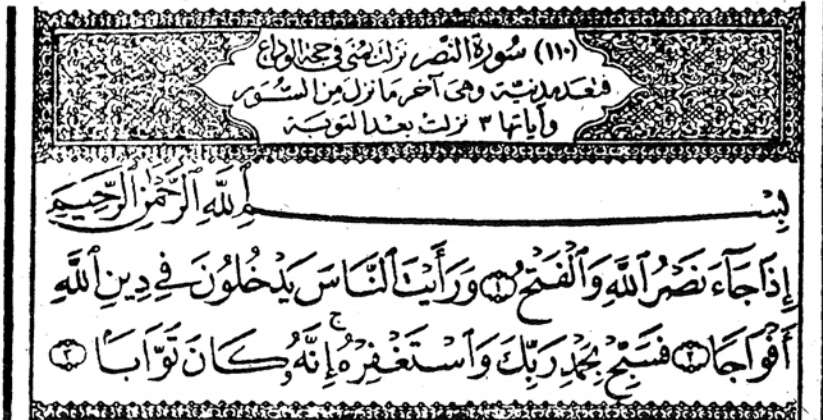 (١١٠) سُورَة النَّصْر نزلت بمنى في حجة الوداع
فتعد مدنية وهى آخر ما نزل من السُّوَر
وآياتها ٣ نزلت بعد التوبة
بِسْمِ ٱللَّهِ ٱلرَّحْمَٰنِ ٱلرَّحِيمِ
إِذَا جَآءَ نَصْرُ ٱللَّهِ وَٱلْفَتْحُ ۝١ وَرَأَيْتَ ٱلنَّاسَ يَدْخُلُونَ فِي دِينِ ٱللَّهِ
أَفْوَاجًا ۝٢ فَسَبِّحْ بِحَمْدِ رَبِّكَ وَٱسْتَغْفِرْهُ ۚ إِنَّهُۥ كَانَ تَوَّابًۢا ۝٣